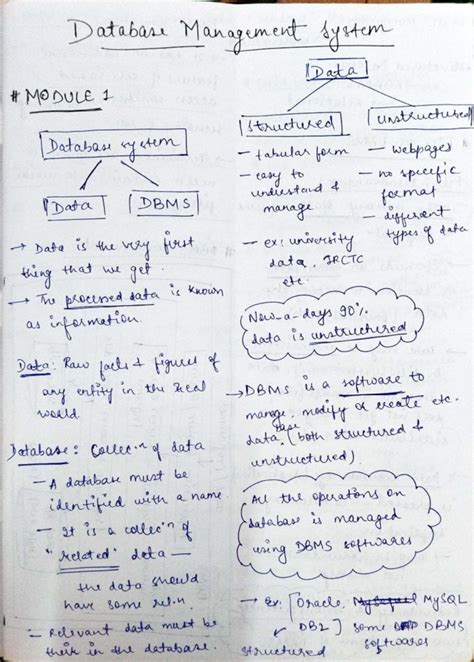 Database Management System
# MODULE 1
Database system
Data
DBMS
→ Data is the very first
thing that we get.
→ The processed data is known
as information.
Data: Raw facts & figures of
any entity in the real
world.
Database: Collecⁿ of data
- A database must be
identified with a name.
- It is a collecⁿ of
"related" data —
the data should
have some relⁿ.
- Relevant data must be
their in the database.
Data
Structured
Unstructured
- tabular form
- easy to
understand &
manage
- ex: university
data, IRCTC
etc.
- webpages
- no specific
format
- different
types of data
Now-a-days 90%
data is unstructured
→ DBMS is a software to
manage, modify or create etc.
database (both structured &
unstructured)
All the operations on
database is managed
using DBMS softwares
→ Ex: [Oracle, MySQL
, DB2] some DBMS
structured softwares